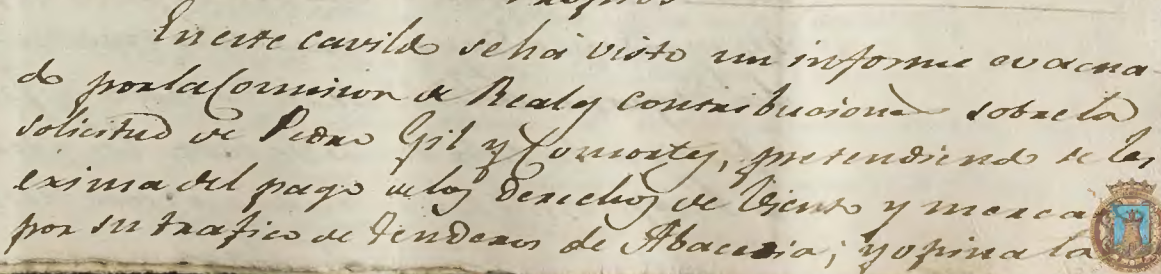 Propios
En este cavildo se há visto un informe evacua-
do por la Comision de Reales Contribuciones sobre la
solicitud de Pedro Gil y Consortes, pretendiendo se les
exima del pago de los Derechos de Viento y merca
por su trafico de tenderos de Abaceria; y opina la